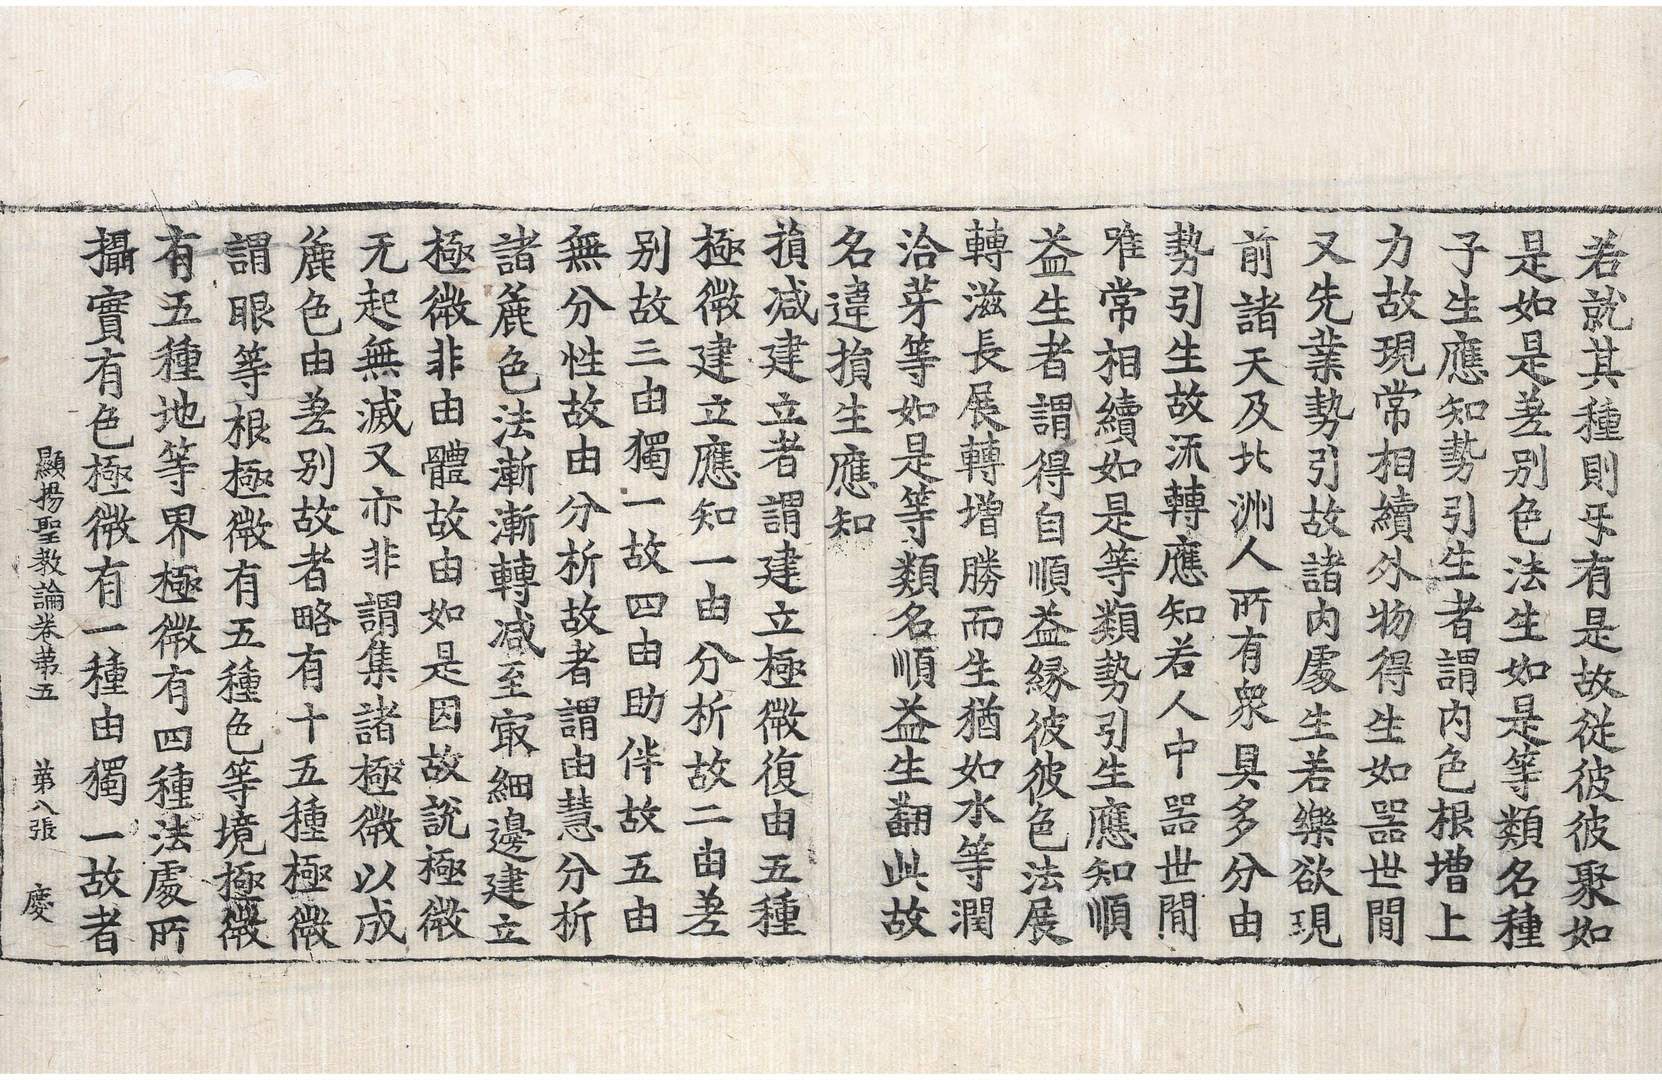 若就其種則乎有是故從彼彼聚如
是如是差别色法生如是等類名種
子生應知勢引生者謂内色根增上
力故現常相續外物得生如器世間
又先業勢引故諸内處生若樂欲現
前諸天及北洲人所有衆具多分由
勢引生故流轉應知若人中器世間
唯常相續如是等類勢引生應知順
益生者謂得自順益緣彼彼色法展
轉滋長展轉增勝而生猶如水等潤
洽芽等如是等類名順益生翻此故
名違損生應知
損减建立者謂建立極微復由五種
極微建立應知一由分析故二由差
别故三由獨一故四由助伴故五由
無分性故由分析故者謂由慧分析
諸麁色法漸漸轉减至㝡細邊建立
極微非由體故由如是因故說極微
无起無滅又亦非謂集諸極微以成
麁色由差别故者略有十五種極微
謂眼等根極微有五種色等境極微
有五種地等界極微有四種法處所
攝實有色極微有一種由獨一故者
顯揚聖教論卷苐五 苐八張 慶